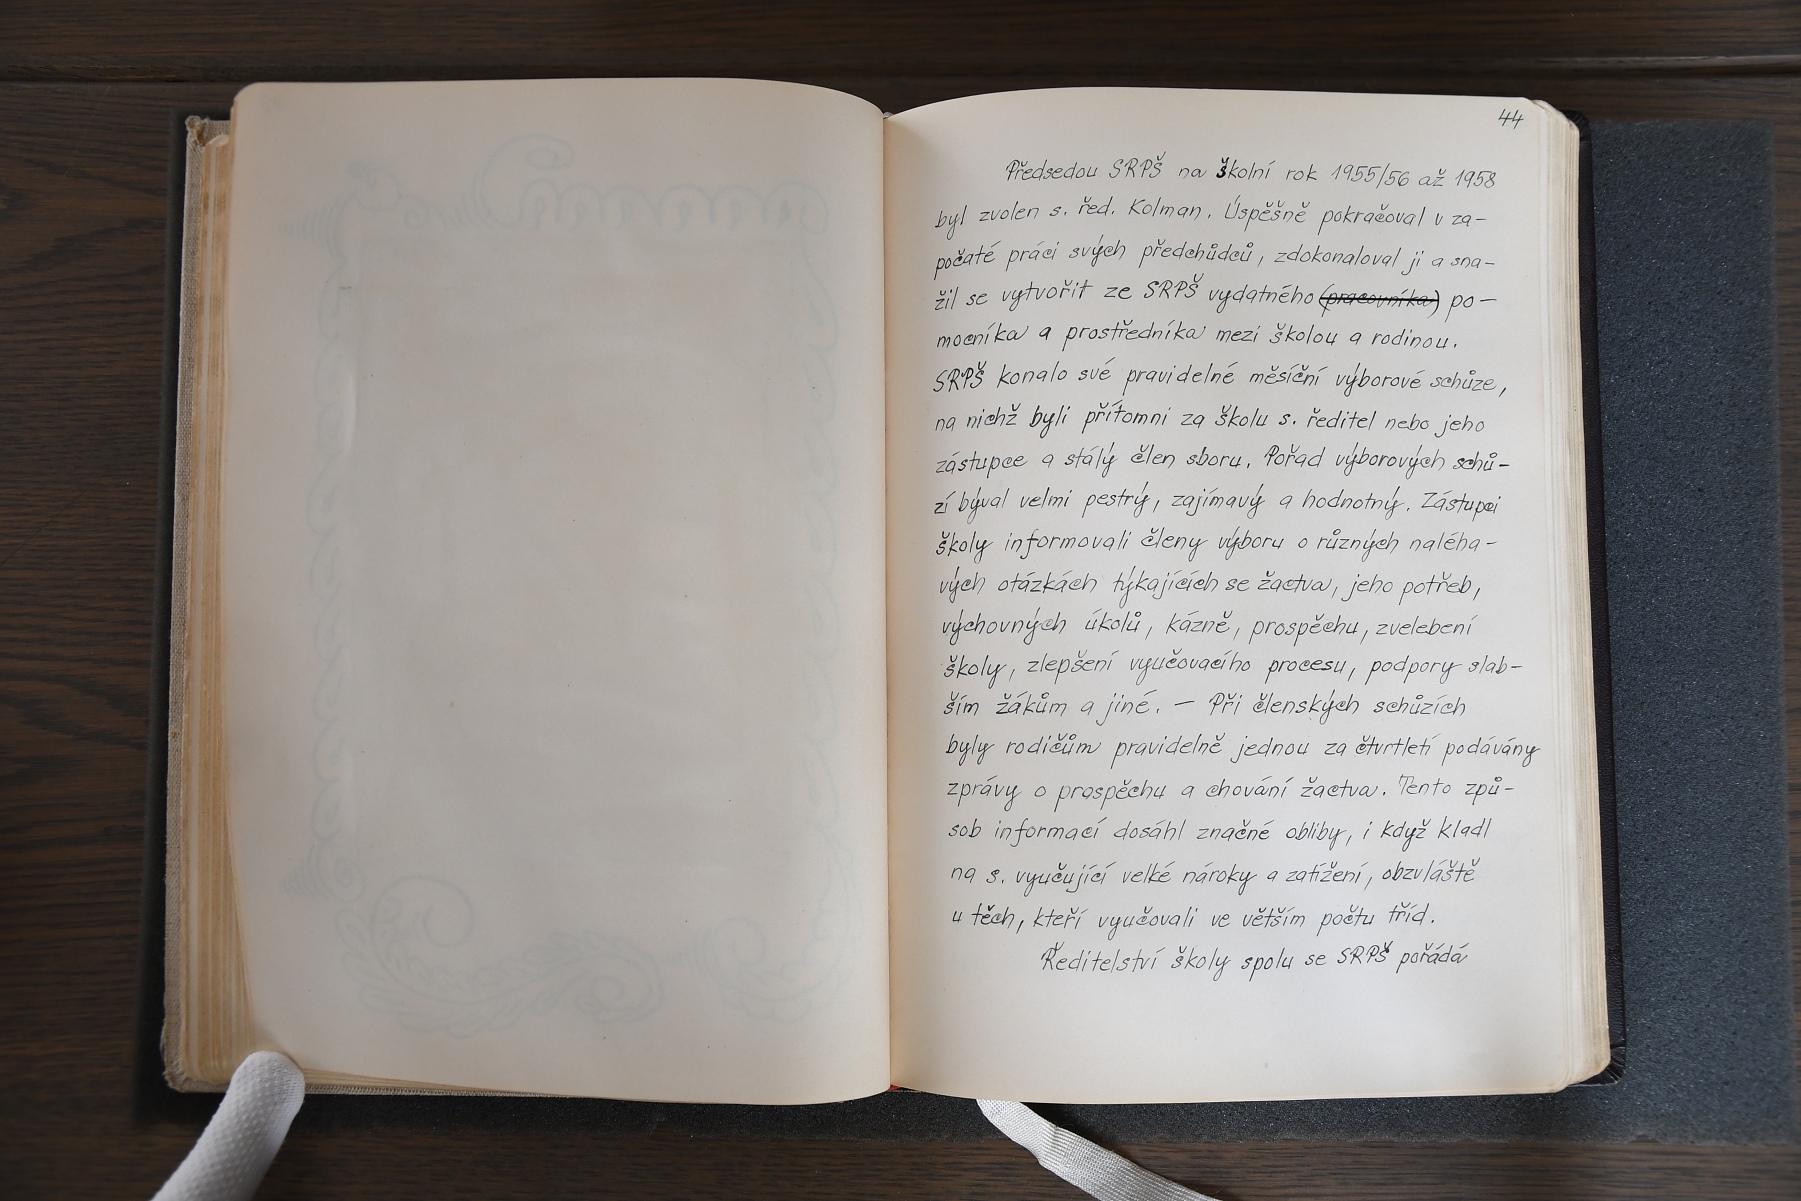 44
Předsedou SRPŠ na školní rok 1955/56 až 1958
byl zvolen s. řed. Kolman. Úspěšně pokračoval v za-
počaté práci svých předchůdců, zdokonaloval ji a sna-
žil se vytvořit ze SRPŠ vydatného (pracovníka) po-
mocníka a prostředníka mezi školou a rodinou.
SRPŠ konalo své pravidelné měsíční výborové schůze,
na nichž byli přítomni za školu s. ředitel nebo jeho
zástupce a stálý člen sboru. Pořad výborových schů-
zí býval velmi pestrý, zajímavý a hodnotný. Zástupci
školy informovali členy výboru o různých naléha-
vých otázkách týkajících se žactva, jeho potřeb,
výchovných úkolů, kázně, prospěchu, zvelebení
školy, zlepšení vyučovacího procesu, podpory slab-
ším žákům a jiné. — Při členských schůzích
byly rodičům pravidelně jednou za čtvrtletí podávány
zprávy o prospěchu a chování žactva. Tento způ-
sob informací dosáhl značné obliby, i když kladl
na s. vyučující velké nároky a zatížení, obzvláště
u těch, kteří vyučovali ve větším počtu tříd.
Ředitelství školy spolu se SRPŠ pořádá